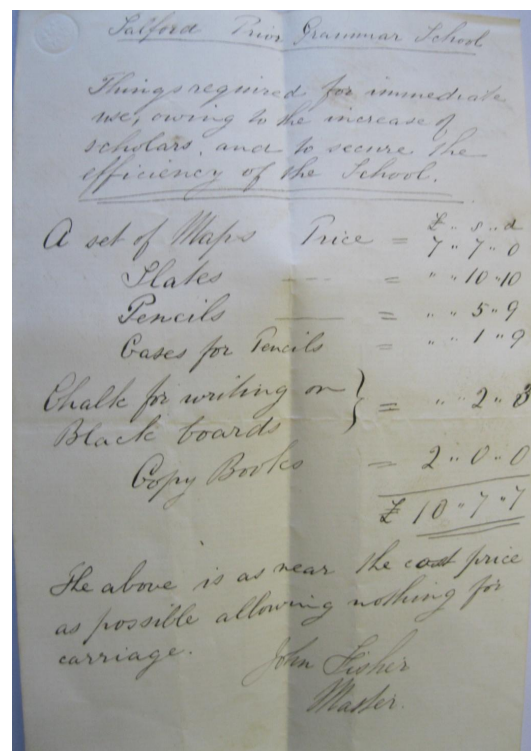 Salford Prior Grammar School
Things required for immediate
use, owing to the increase of
scholars, and to secure the
efficiency of the School.
£ " s " d
A set of Maps Price = 7 " 7 " 0
Slates — = " " 10 " 10
Pencils — = " " 5 " 9
Cases for Pencils = " " 1 " 9
Chalk for writing on
Black boards } = " " 2 " 3
Copy Books = 2 " 0 " 0
£ 10 " 7 " 7
The above is as near the cost price
as possible allowing nothing for
carriage.
John Fisher
Master.